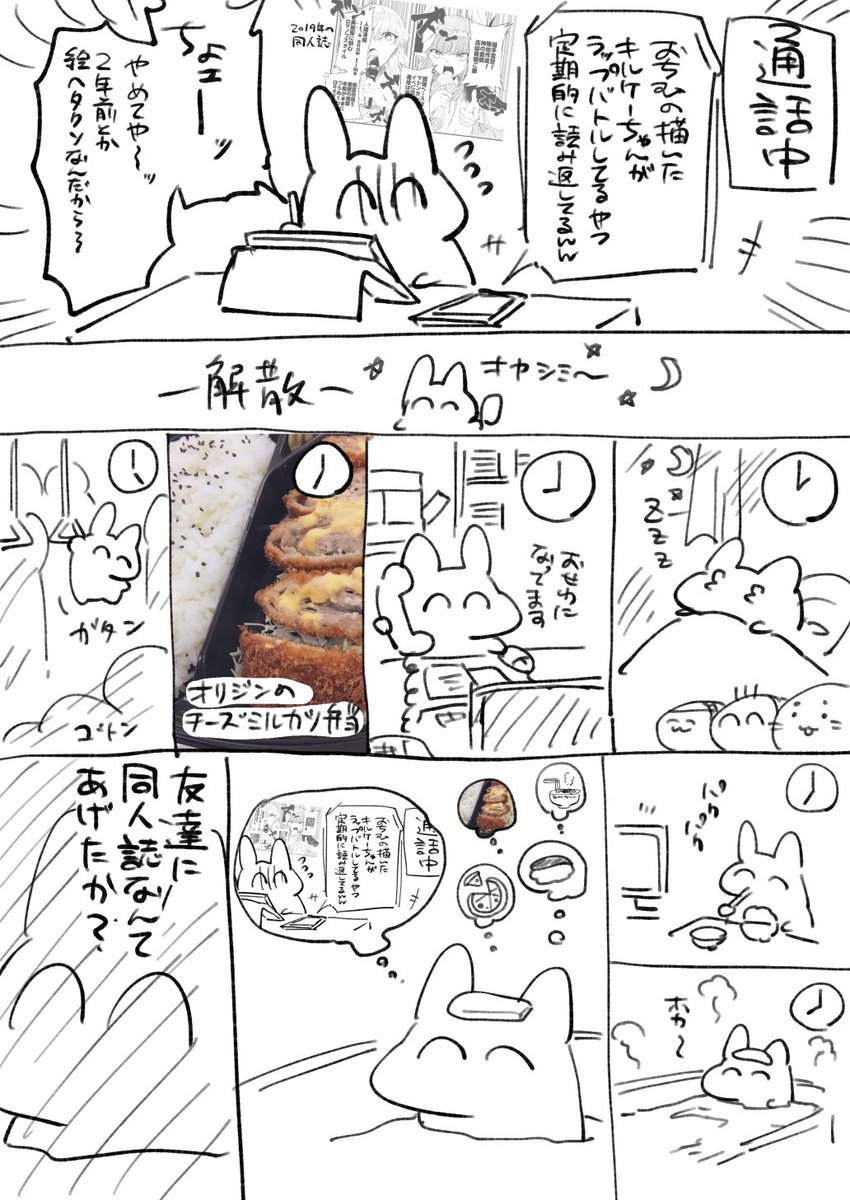 通話中
おちむの描いた
キルケーちゃんが
ラップバトルしてるやつ
定期的に読み返してるんん
2019年の
同人誌
ちょエーッ
やめてや〜ッ
2年前とか
絵ヘタクソなんだから〜
ー解散ー
オヤシミ〜
Zzzz
おせわに
なてます
オリジンの
チーズミルカツ弁当
ガタン
ゴトン
ホカ〜
通話中
おちむの描いた
キルケーちゃんが
ラップバトルしてるやつ
定期的に読み返してるんん
友達に
同人誌なんて
あげたか?